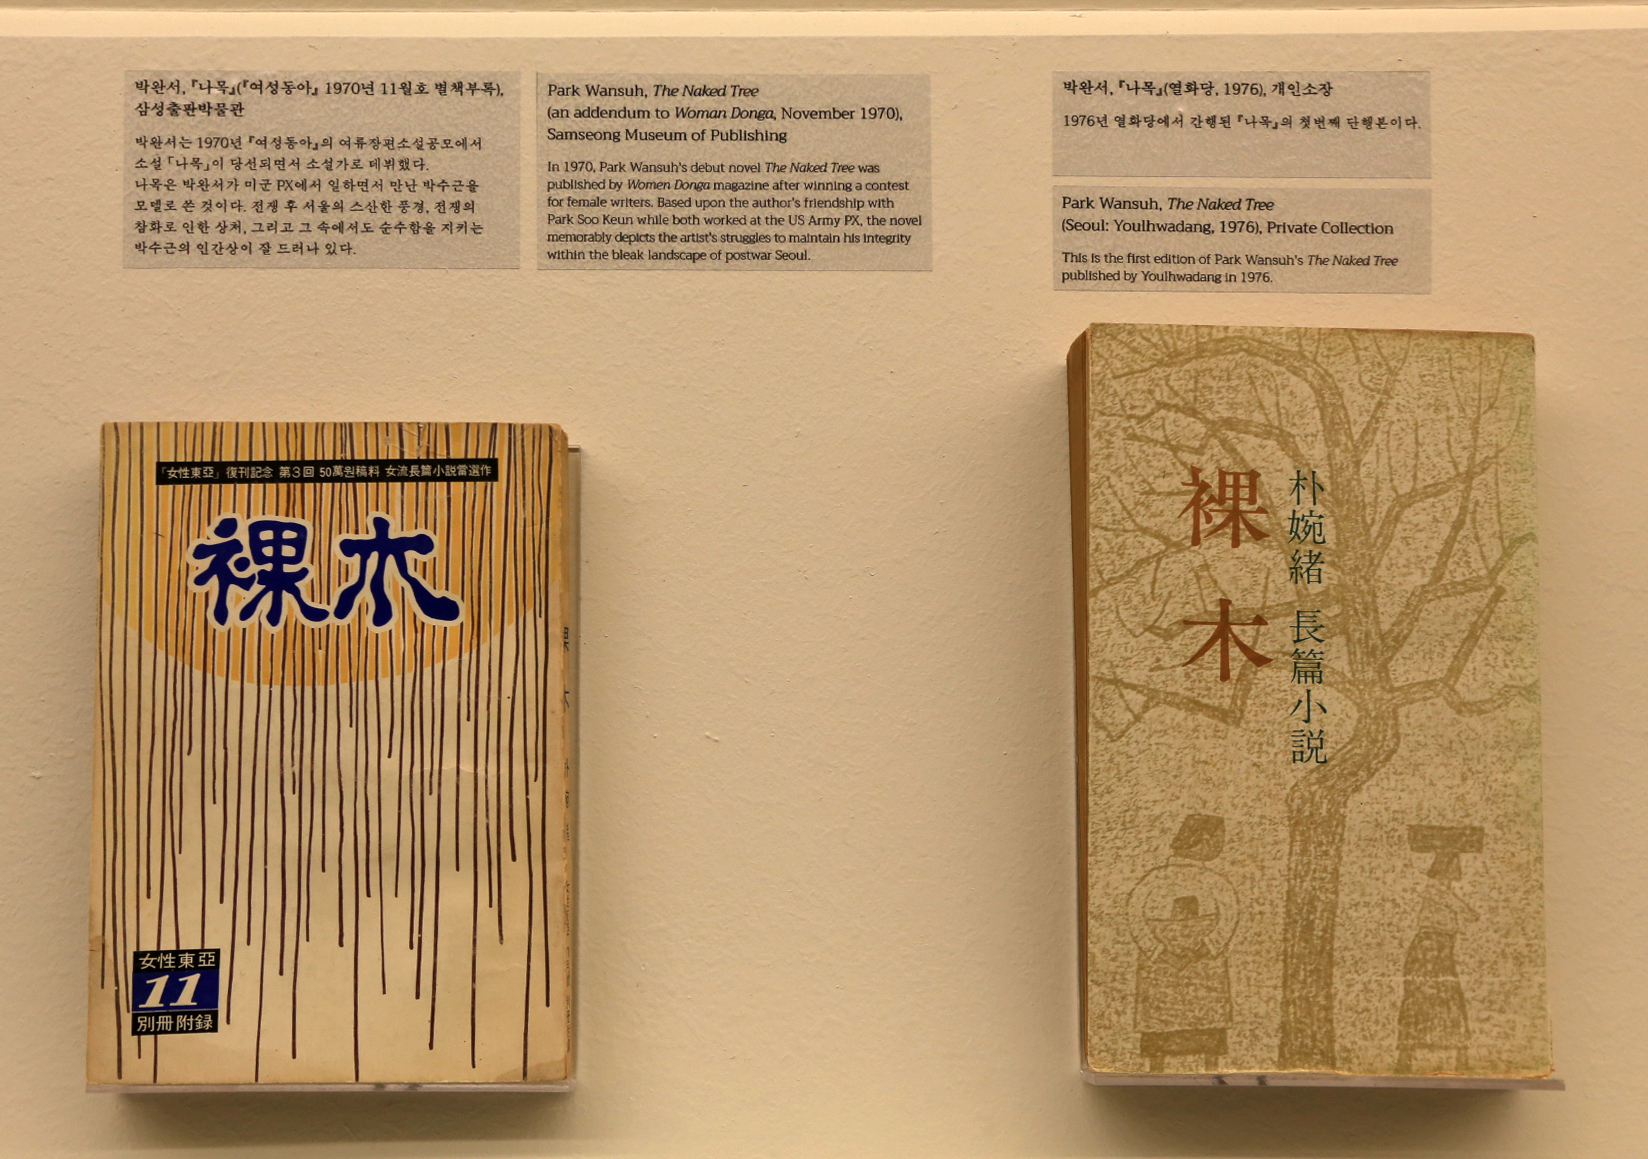 박완서, 『나목』(『여성동아』 1970년 11월호 별책부록),
삼성출판박물관
박완서는 1970년 『여성동아』의 여류장편소설공모에서
소설 「나목」이 당선되면서 소설가로 데뷔했다.
나목은 박완서가 미군 PX에서 일하면서 만난 박수근을
모델로 쓴 것이다. 전쟁 후 서울의 스산한 풍경, 전쟁의
참화로 인한 상처, 그리고 그 속에서도 순수함을 지키는
박수근의 인간상이 잘 드러나 있다.
Park Wansuh, The Naked Tree
(an addendum to Woman Donga, November 1970),
Samseong Museum of Publishing
In 1970, Park Wansuh's debut novel The Naked Tree was
published by Women Donga magazine after winning a contest
for female writers. Based upon the author's friendship with
Park Soo Keun while both worked at the US Army PX, the novel
memorably depicts the artist's struggles to maintain his integrity
within the bleak landscape of postwar Seoul.
박완서, 『나목』(열화당, 1976), 개인소장
1976년 열화당에서 간행된 『나목』의 첫번째 단행본이다.
Park Wansuh, The Naked Tree
(Seoul: Youlhwadang, 1976), Private Collection
This is the first edition of Park Wansuh's The Naked Tree
published by Youlhwadang in 1976.
「女性東亞」復刊記念 第3回 50萬원稿料 女流長篇小說當選作
裸木
女性東亞
11
別冊附録
裸木
朴婉緖 長篇小説